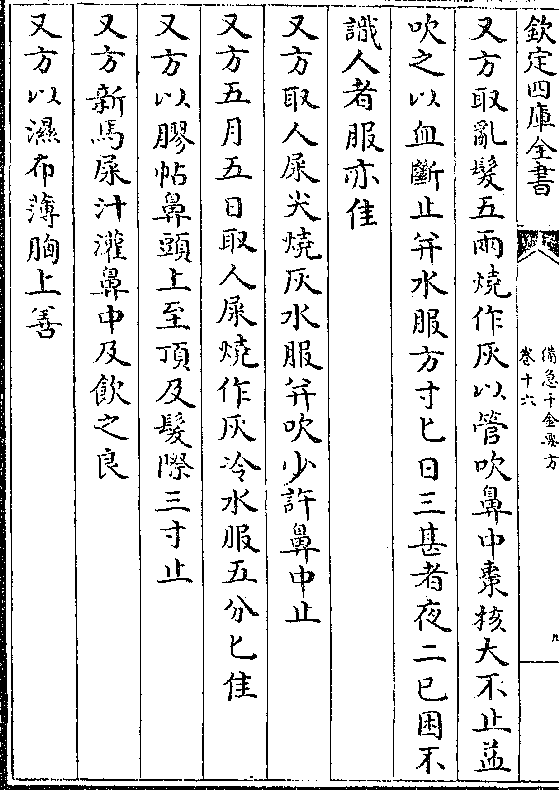 欽定四庫全書
備急千金要方
卷十六
九
又方取亂髮五兩燒作灰以管吹鼻中棗核大不止益
吹之以血斷止并水服方寸匕日三甚者夜二已困不
識人者服亦佳
又方取人屎尖燒灰水服并吹少許鼻中止
又方五月五日取人屎燒作灰冷水服五分匕佳
又方以膠帖鼻頭上至頂及髮際三寸止
又方新馬屎汁灌鼻中及飲之良
又方以濕布薄胸上善